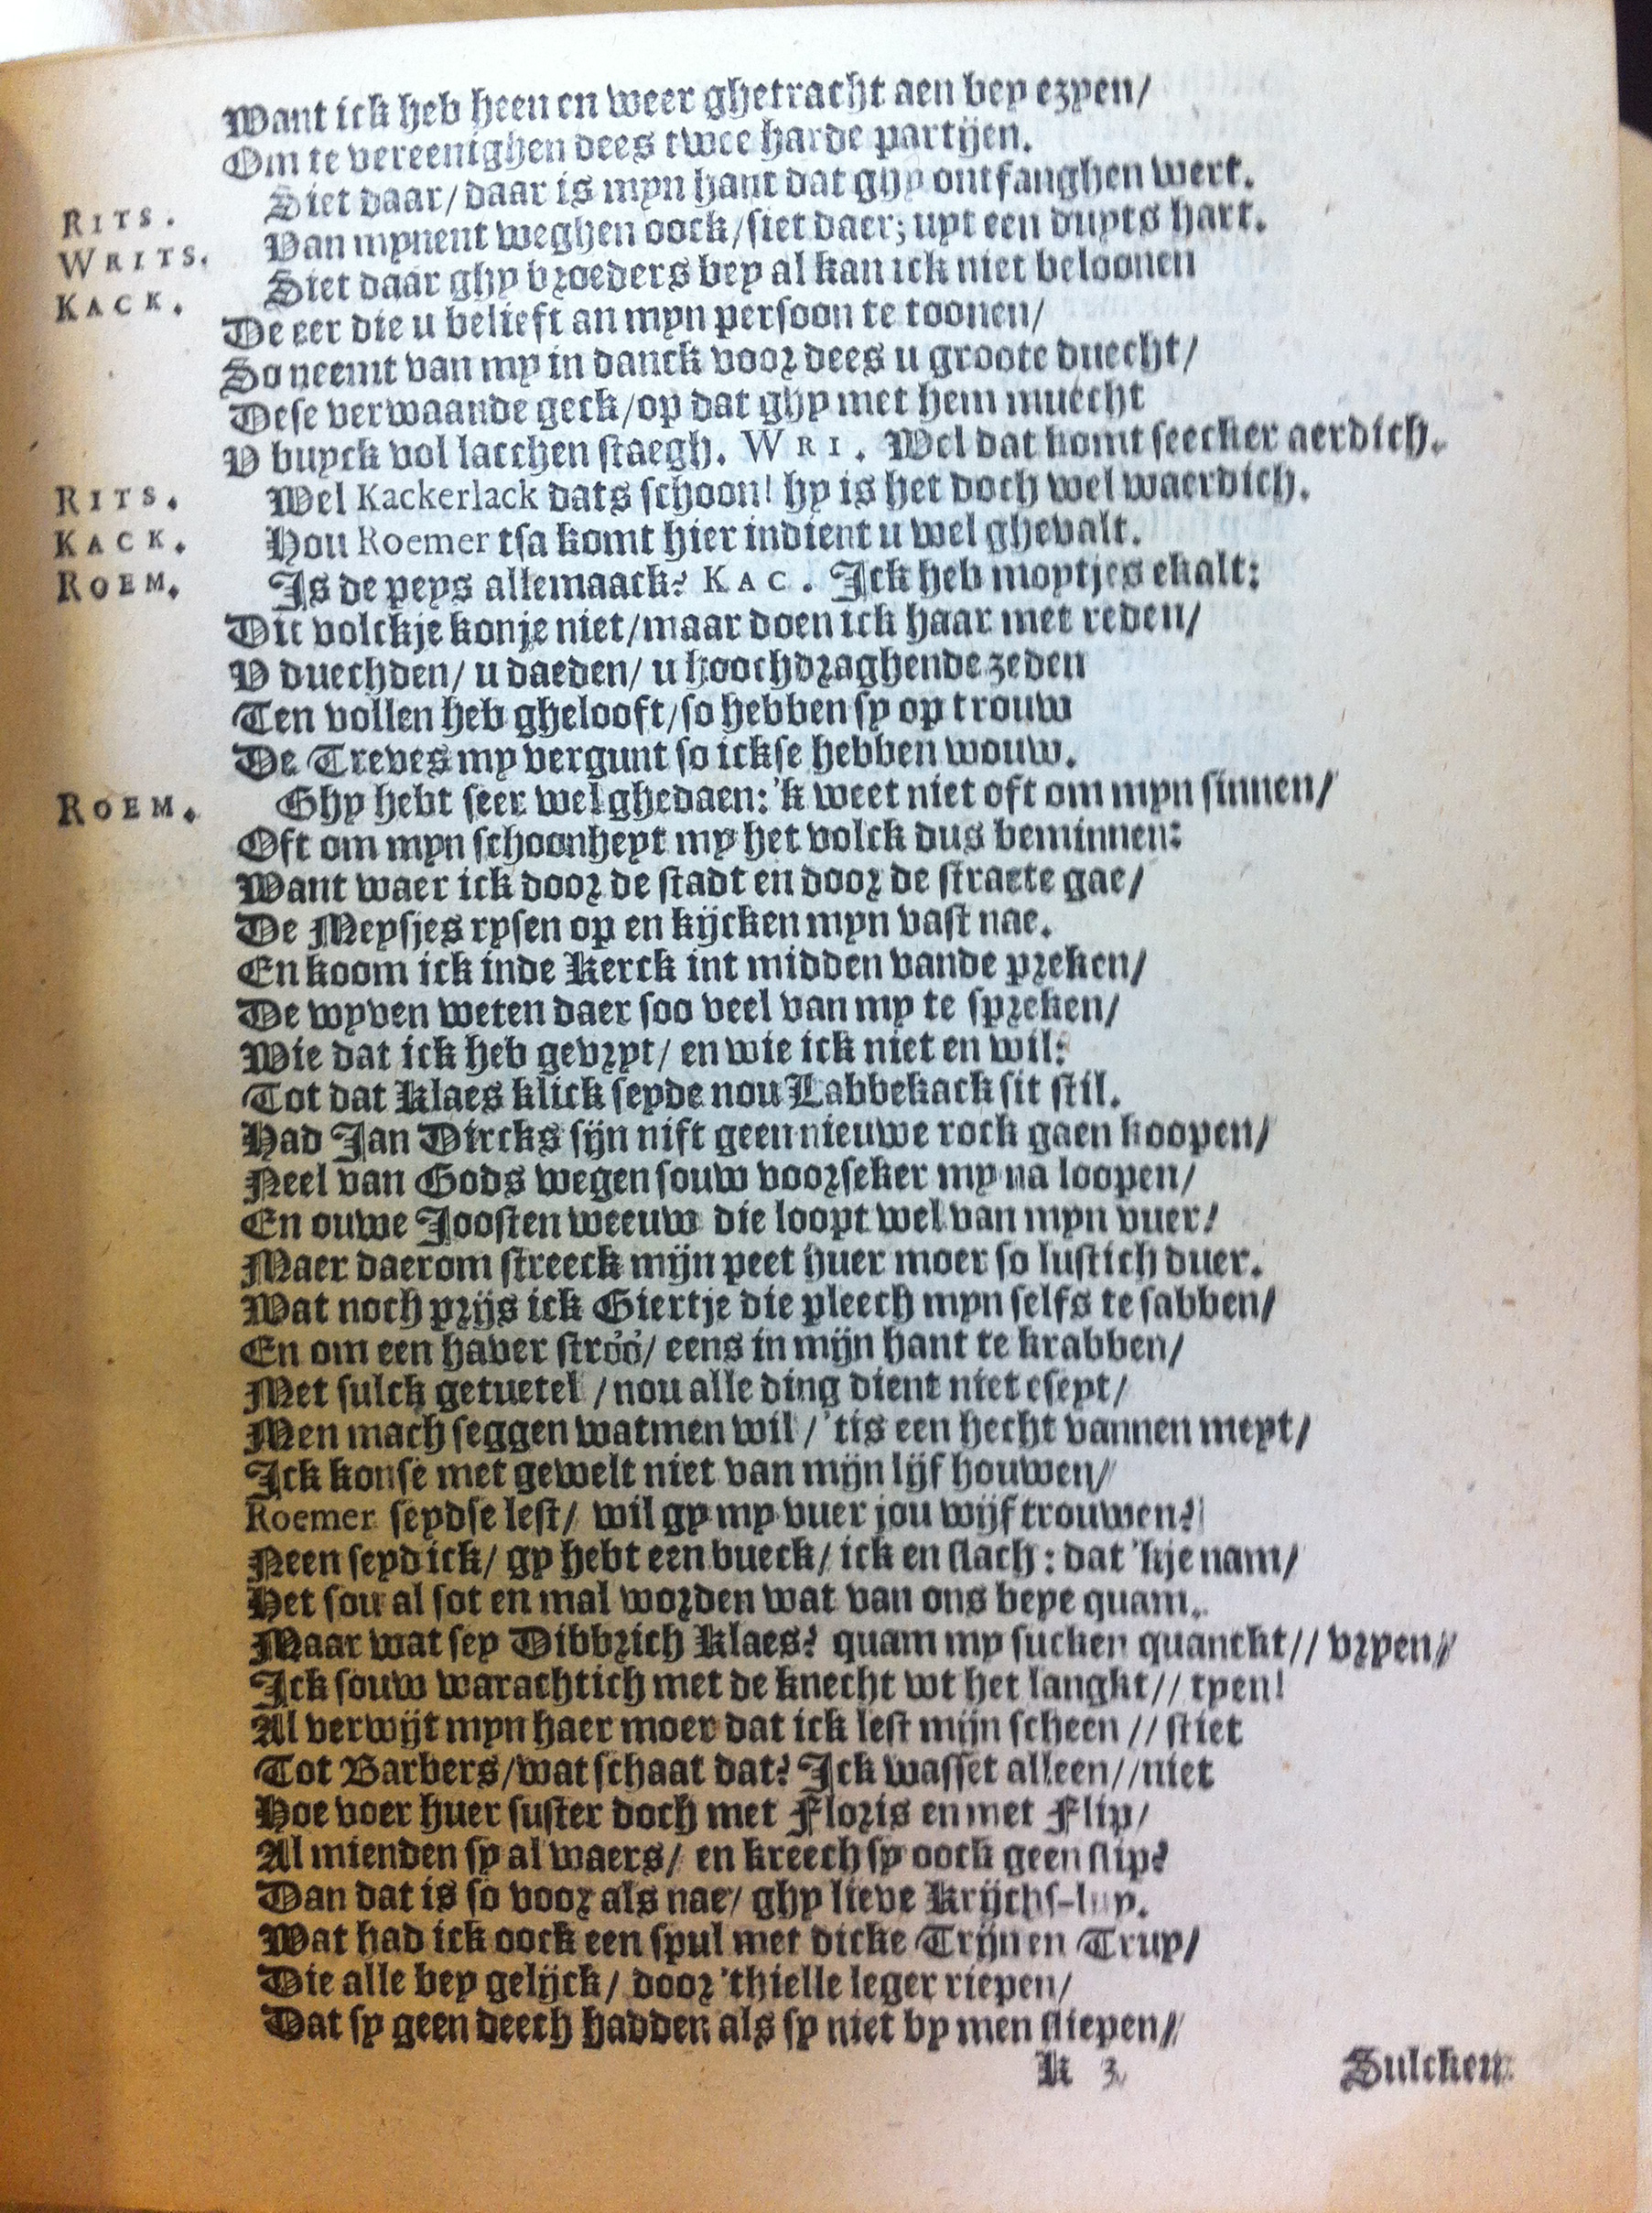 Want ick heb heen en weer ghetracht aen bey ezyen/
Om te vereenighen dees twee harde partijen.
RITS. Siet daar/ daar is myn hant dat ghy ontfanghen wert.
WRITS. Van mynent weghen oock/ siet daer; uyt een duyts hart.
KACK. Siet daar ghy broeders bey al kan ick niet beloonen
De eer die u belieft an myn persoon te toonen/
So neemt van my in danck voor dees u groote duecht/
Dese verwaande geck/ op dat ghy met hem muecht
V buyck vol lacchen staegh. WRI. Wel dat komt seecker aerdich.
RITS. Wel Kackerlack dats schoon! hy is het doch wel waerdich.
KACK. Hou Roemer tsa komt hier indient u wel ghevalt.
ROEM. Is de peys allemaack? KAC. Ick heb moytjes ekalt:
Dit volckje konje niet/ maar doen ick haar met reden/
V duechden/ u daeden/ u hoochdraghende zeden
Ten vollen heb ghelooft/ so hebben sy op trouw
De Treves my vergunt so ickse hebben wouw.
ROEM. Ghy hebt seer wel ghedaen: 'k weet niet oft om myn sinnen/
Oft om myn schoonheyt my het volck dus beminnen:
Want waer ick door de stadt en door de straete gae/
De Meysjes rysen op en kijcken myn vast nae.
En koom ick inde Kerck int midden vande preken/
De wyven weten daer soo veel van my te spreken/
Wie dat ick heb gevryt/ en wie ick niet en wil:
Tot dat Klaes klick seyde nou Labbekack sit stil.
Had Jan Dircks sijn nift geen nieuwe rock gaen koopen/
Neel van Gods wegen souw voorseker my na loopen/
En ouwe Joosten weeuw die loopt wel van myn vuer!
Maer daerom streeck mijn peet huer moer so lustich duer.
Wat noch prijs ick Giertje die pleech myn selfs te sabben/
En om een haver ströö/ eens in mijn hant te krabben/
Met sulck getuetel/ nou alle ding dient niet eseyt/
Men mach seggen watmen wil/ 'tis een hecht vannen meyt/
Ick konse met gewelt niet van mijn lijf houwen/
Roemer seydse lest/ wil gy my vuer jou wijf trouwen?
Neen seyd ick/ gy hebt een vueck/ ick en slach: dat 'kje nam/
Het sou al sot en mal worden wat van ons beye quam.
Maar wat sey Dibbrich Klaes? quam my sucken quanckt// vryen//
Ick souw warachtich met de knecht wt het langht// tyen!
Al verwijt myn haer moer dat ick lest mijn scheen// stiet
Tot Barbers/ wat schaat dat? Ick wasset alleen// niet
Hoe voer huer suster doch met Floris en met Flip/
Al mienden sy al waers/ en kreech sy oock geen slip?
Dan dat is so voor als nae/ ghy lieve Krijchs-luy.
Wat had ick oock een spul met dicke Trijn en Truy/
Die alle bey gelijck/ door 'thielle leger riepen/
Dat sy geen deech hadden als sy niet by men sliepen//
K 3 Sulcken